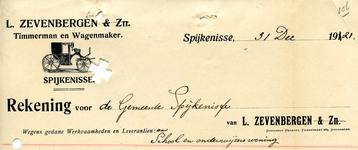 106
L. ZEVENBERGEN & Zn.
Timmerman en Wagenmaker.
Spijkenisse, 31 Dec 1921.
SPIJKENISSE.
Rekening voor de Gemeente Spijkenisse
van L. ZEVENBERGEN & Zn.
Wegens gedane Werkzaamheden en Leverantiën: aan
School en onderwijzerswoning